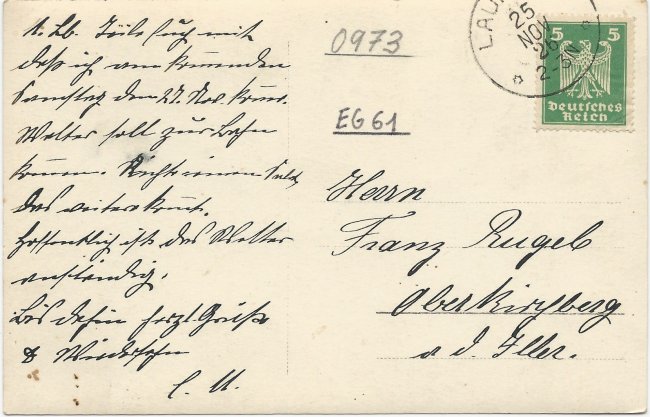 Lb. Teile Euch mit
daß ich am kommenden
Samstag den 27. Nov. komme.
Walter soll zur Bahn
kommen. Richte einen
das weitere kommt.
Hoffentlich ist das Wetter
anständig.
Bis dahin herzl. Grüße
& Wiedersehn
0973
EG 61
LAU
25
NOV
26
2-3
5 5
Deutsches
Reich
Herrn
Franz Rugel
Oberkirchberg
a. d. Iller.